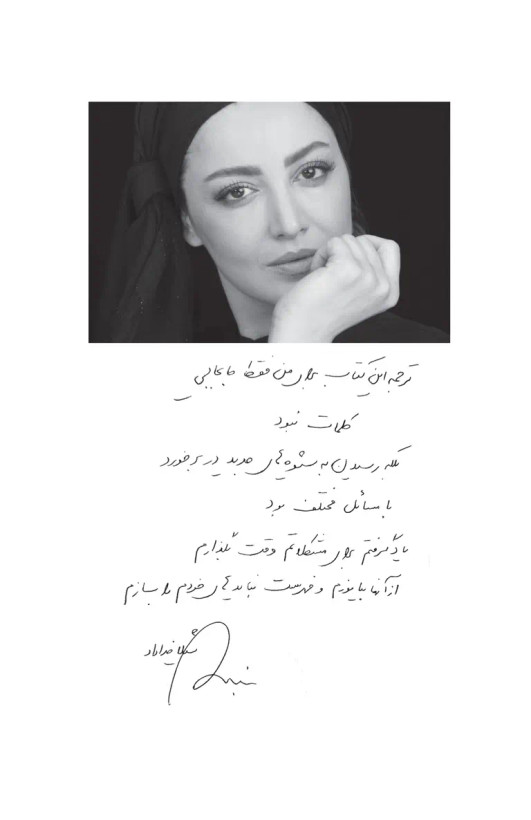 ترجمه این کتاب برای من فقط جابجایی
کلمات نبود
بلکه رسیدن به شیوه‌های جدید در برخورد
با مسائل مختلف بود
یاد گرفتم برای مشکلاتم وقت بگذارم
از آنها بیاموزم و فهرست نبایدهای خودم را بسازم
خداداد